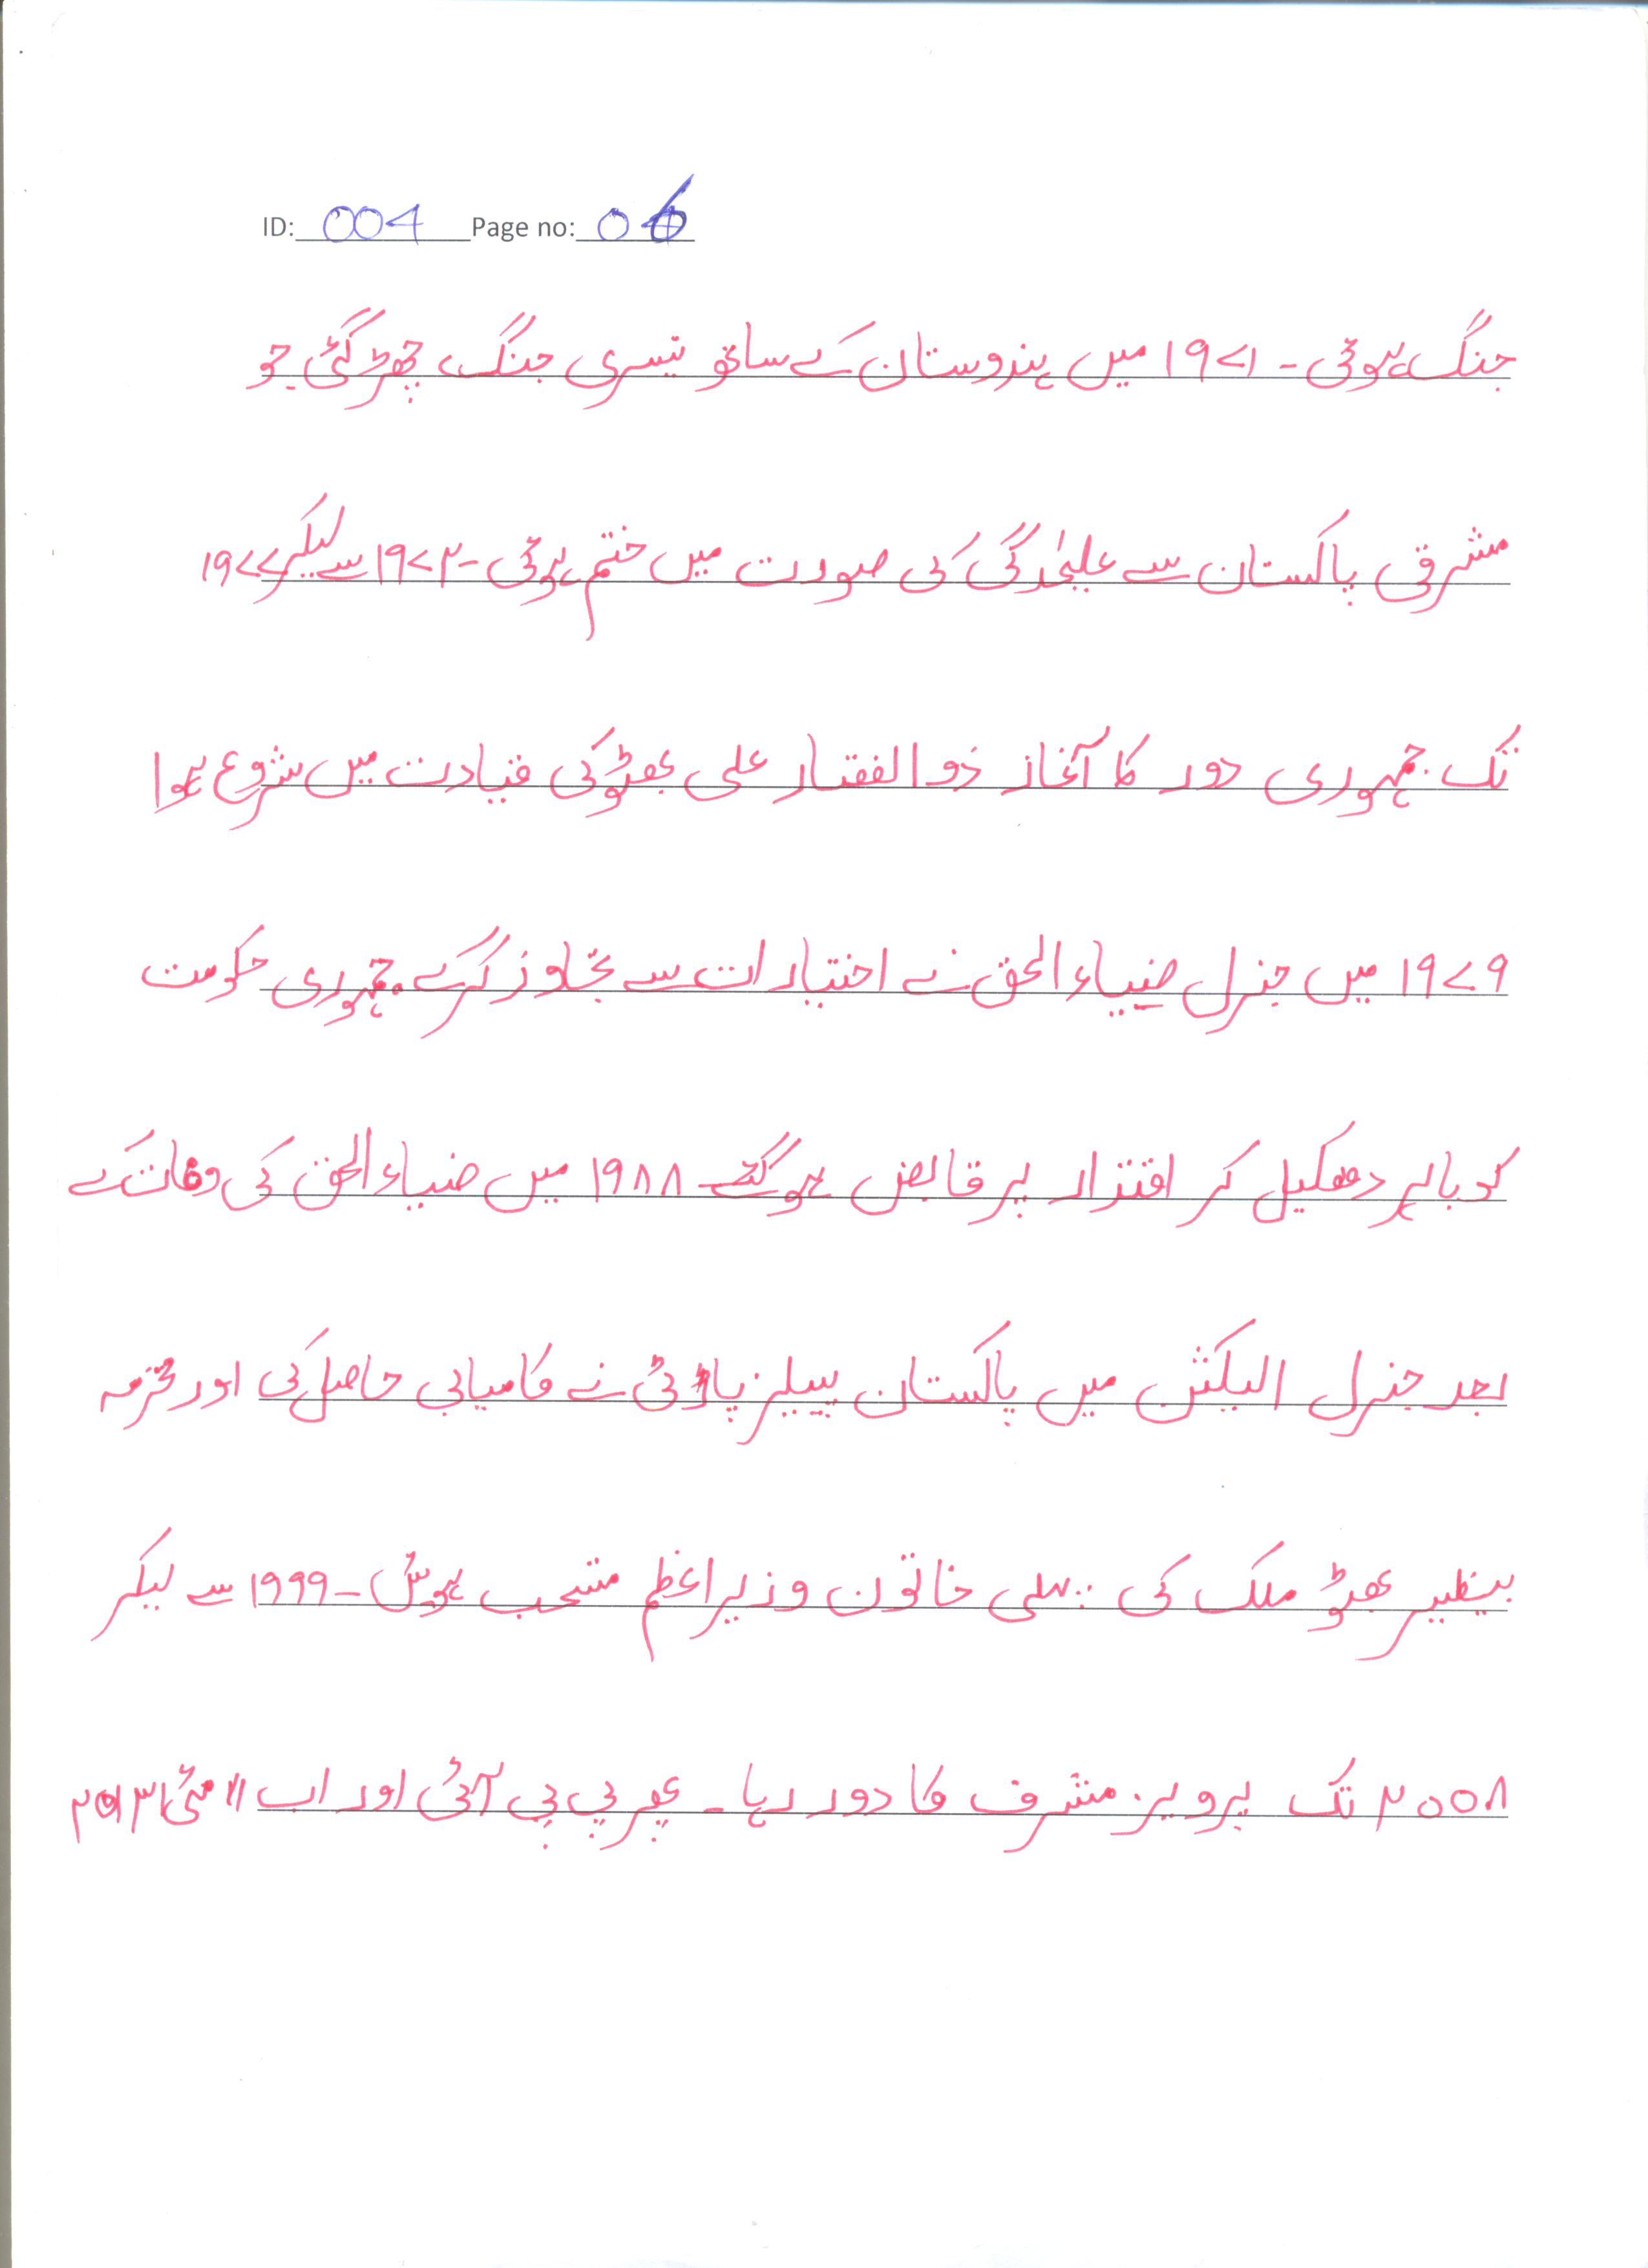 ID: 004 Page no: 06
جنگ ہوئی۔ ۱۹۷۱ میں ہندوستان کے ساتھ تیسری جنگ چھڑ گئی جو
مشرقی پاکستان سے علیحٰدگی کی صورت میں ختم ہوئی۔ ۱۹۷۲ سے لیکر ۱۹۷۷
تک جمہوری دور کا آغاز ذوالفقار علی بھٹو کی قیادت میں شروع ہوا
۱۹۷۹ میں جنرل ضیاء الحق نے اختیارات سے تجاوز کرکے جمہوری حکومت
کو باہر دھکیل کر اقتدار پر قابض ہوگئے۔ ۱۹۸۸ میں ضیاء الحق کی وفات کے
بعد جنرل الیکشن میں پاکستان پیپلز پارٹی نے کامیابی حاصل کی اور محترمہ
بینظیر بھٹو ملک کی پہلی خاتون وزیراعظم منتخب ہوئیں۔ ۱۹۹۹ سے لیکر
۲۰۰۸ تک پرویز مشرف کا دور رہا۔ پھر پی پی آئی اور اب ۱۱ مئی ۲۰۱۳